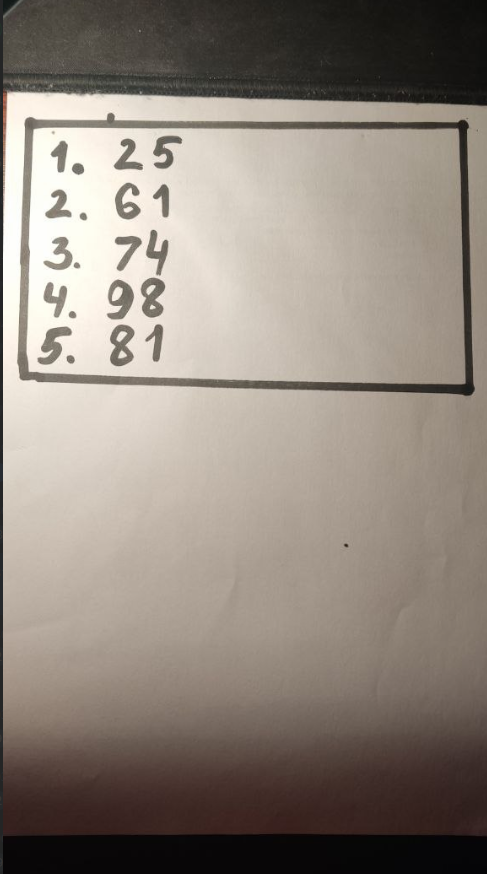 1. 25
2. 61
3. 74
4. 98
5. 81